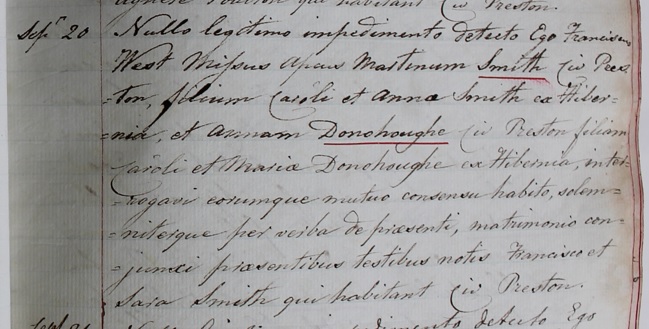 qui habitant in Preston.
Sepr 20 Nullo legitimo impedimento detecto Ego Franciscus
West Missus Apcus Martinum Smith in Pres=
=ton, filium Caroli et Annæ Smith ex Hiber=
=nia, et Annam Donohoughe in Preston filiam
Caroli et Mariæ Donohoughe ex Hibernia, inter=
=rogavi eorumque mutuo consensu habito, solem=
=niterque per verba de præsenti, matrimonio con=
=junxi præsentibus testibus notis Francisco et
Sara Smith qui habitant in Preston.
Sepr detecto Ego